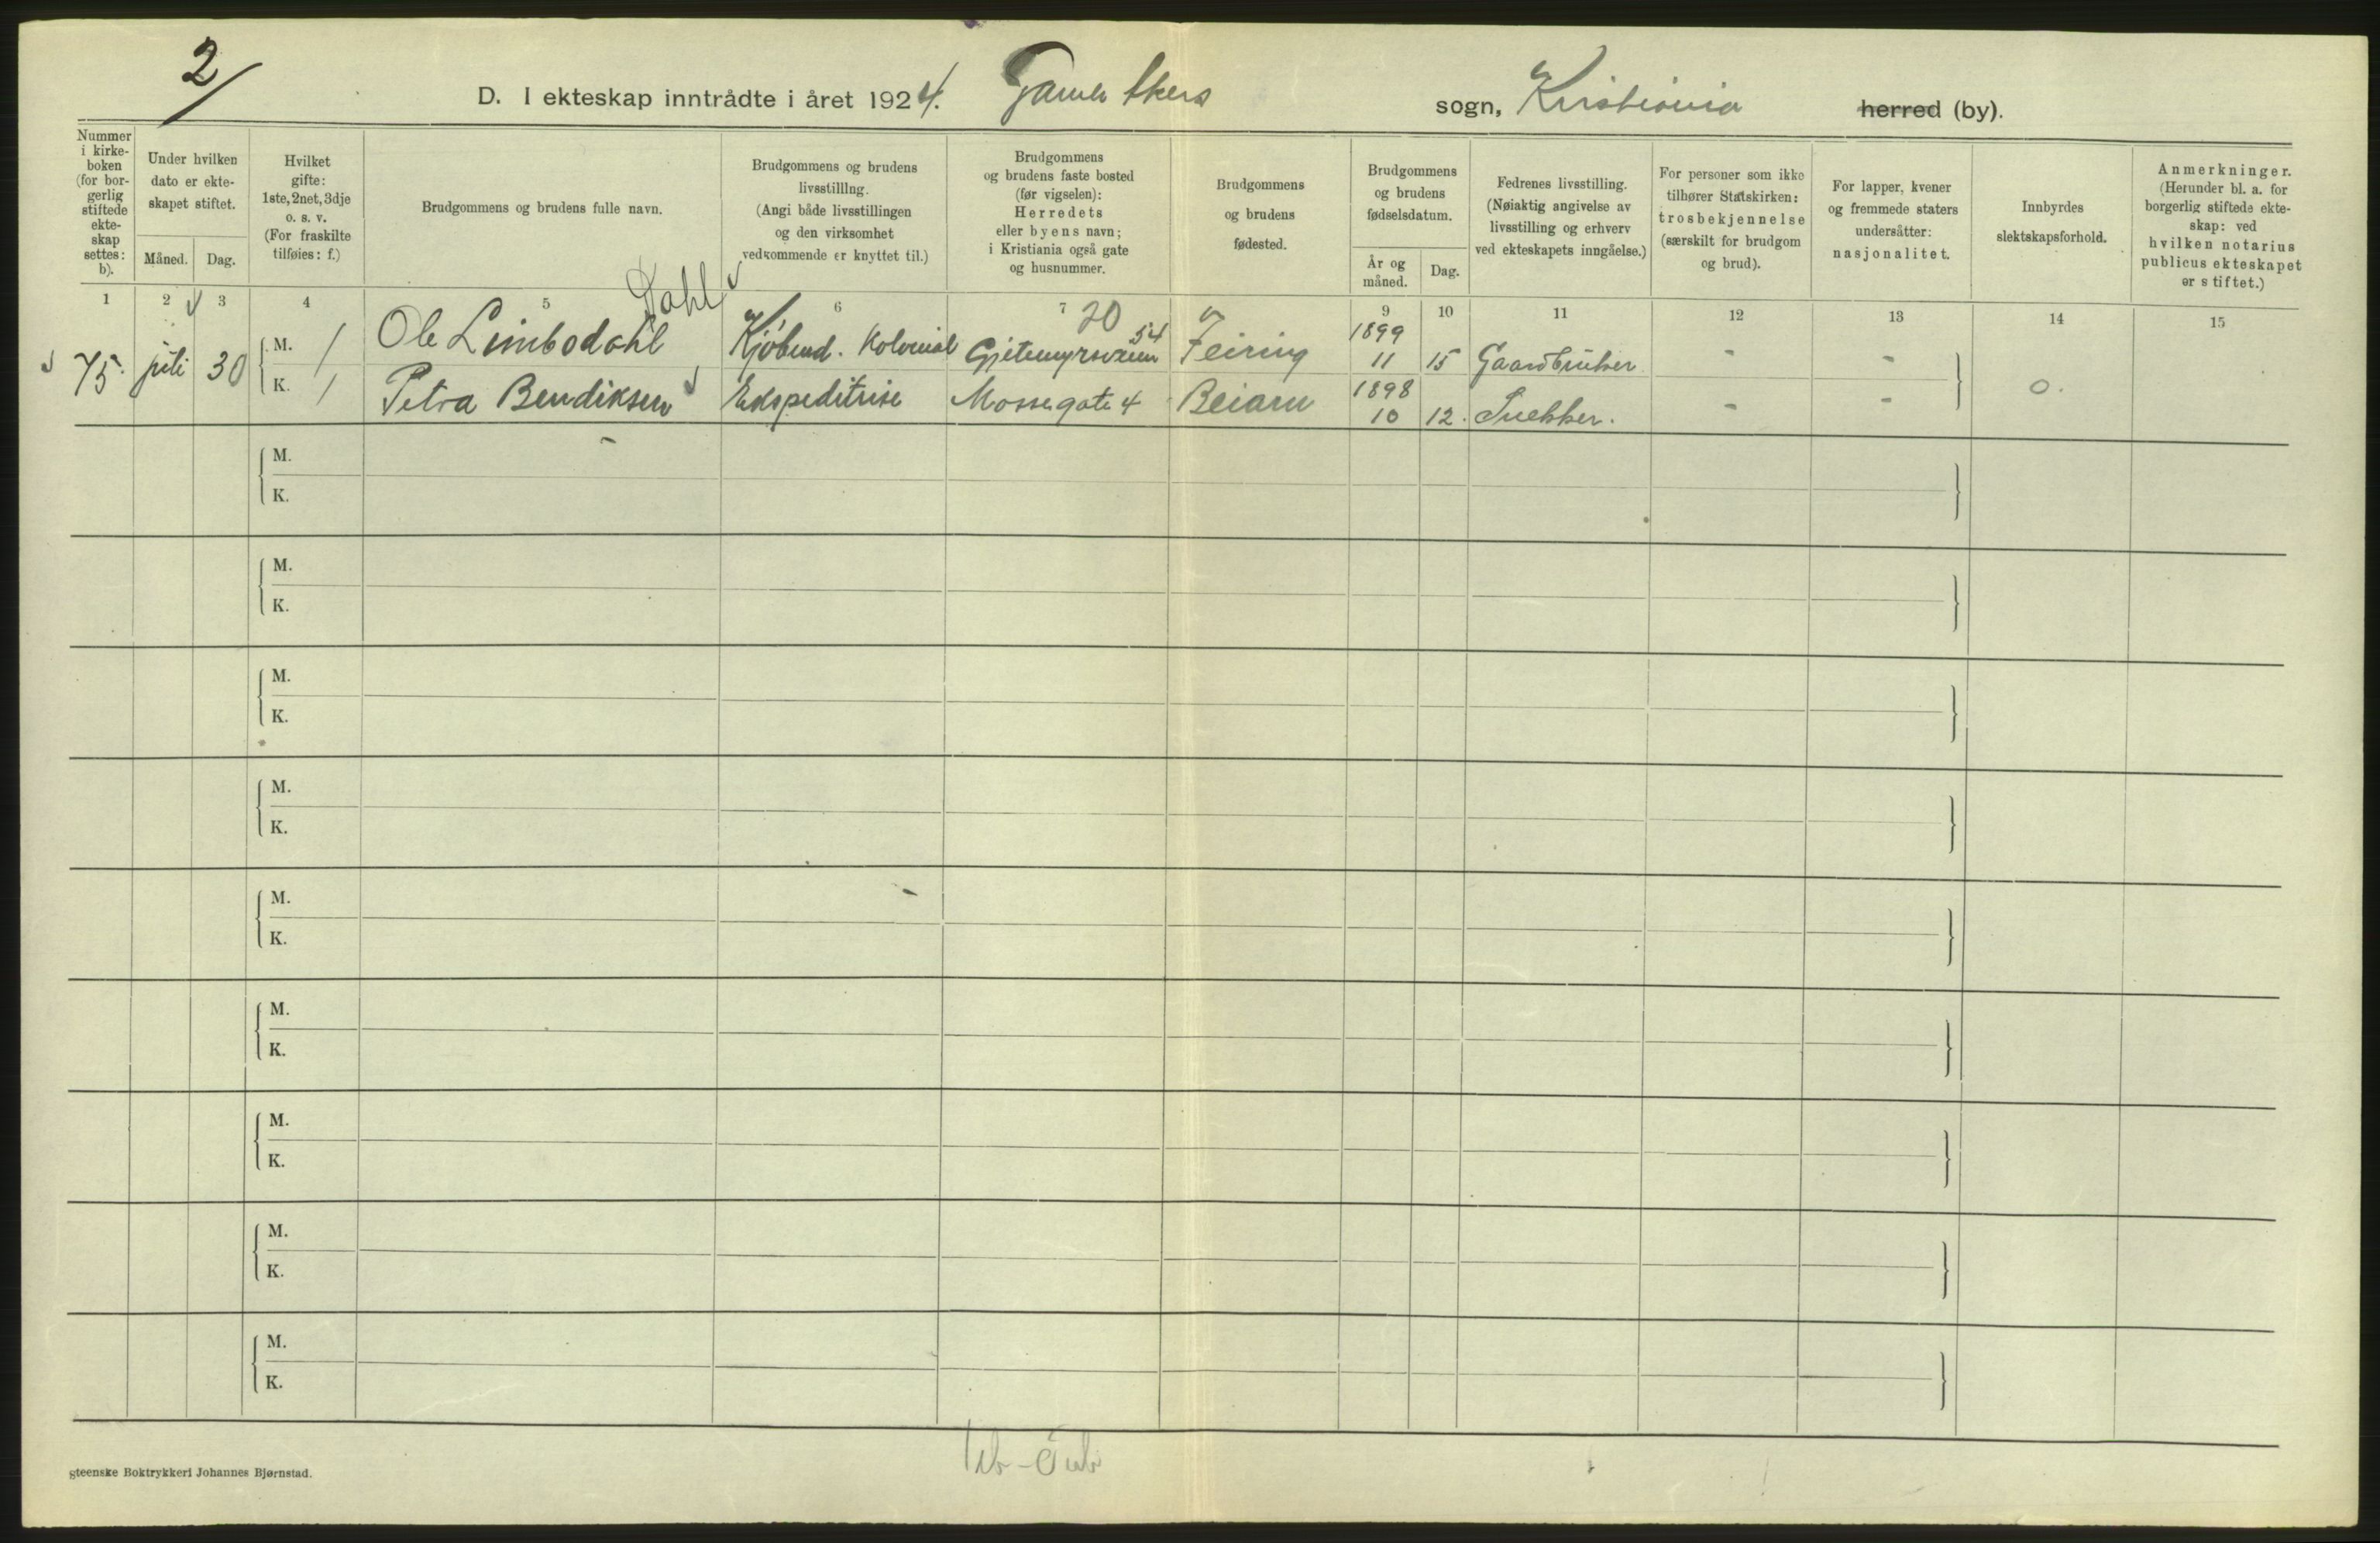 2/
D. I ekteskap inntrådte i året 1924. Gamle Akers sogn, Kristiania herred (by).
Nummer i kirke- boken (for bor- gerlig stiftede ekte- skap settes: b).
Under hvilken dato er ekte- skapet stiftet.
Måned. Dag.
Hvilket gifte: 1ste, 2net, 3dje o. s. v. (For fraskilte tilføies: f.)
Brudgommens og brudens fulle navn.
Brudgommens og brudens livsstilling. (Angi både livsstillingen og den virksomhet vedkommende er knyttet til.)
Brudgommens og brudens faste bosted (før vigselen): Herredets eller byens navn; i Kristiania også gate og husnummer.
Brudgommens og brudens fødested.
Brudgommens og brudens fødselsdatum.
År og måned. Dag.
Fedrenes livsstilling. (Nøiaktig angivelse av livsstilling og erhverv ved ekteskapets inngåelse.)
For personer som ikke tilhører Statskirken: trosbekjennelse (særskilt for brudgom og brud).
For lapper, kvener og fremmede staters undersåtter: nasjonalitet.
Innbyrdes slektskapsforhold.
Anmerkninger. (Herunder bl. a. for borgerlig stiftede ekte- skap: ved hvilken notarius publicus ekteskapet er stiftet.)
1 2 3 4 5 6 7 8 9 10 11 12 13 14 15
Dahl
20
75. juli 30 M. / Ole Limbodahl Kjøbmd. Kolonial Gjetemyrsveien 54 Feiring 1899 11 15 Gaardbruker - -
K. / Petra Bendiksen Ekspeditrise Mossegate 4 Beiarn 1898 10 12. Snekker. - - 0.
M.
K.
M.
K.
M.
K.
M.
K.
M.
K.
M.
K.
M.
K.
M.
K.
M.
K.
gteenske Boktrykkeri Johannes Bjørnstad.